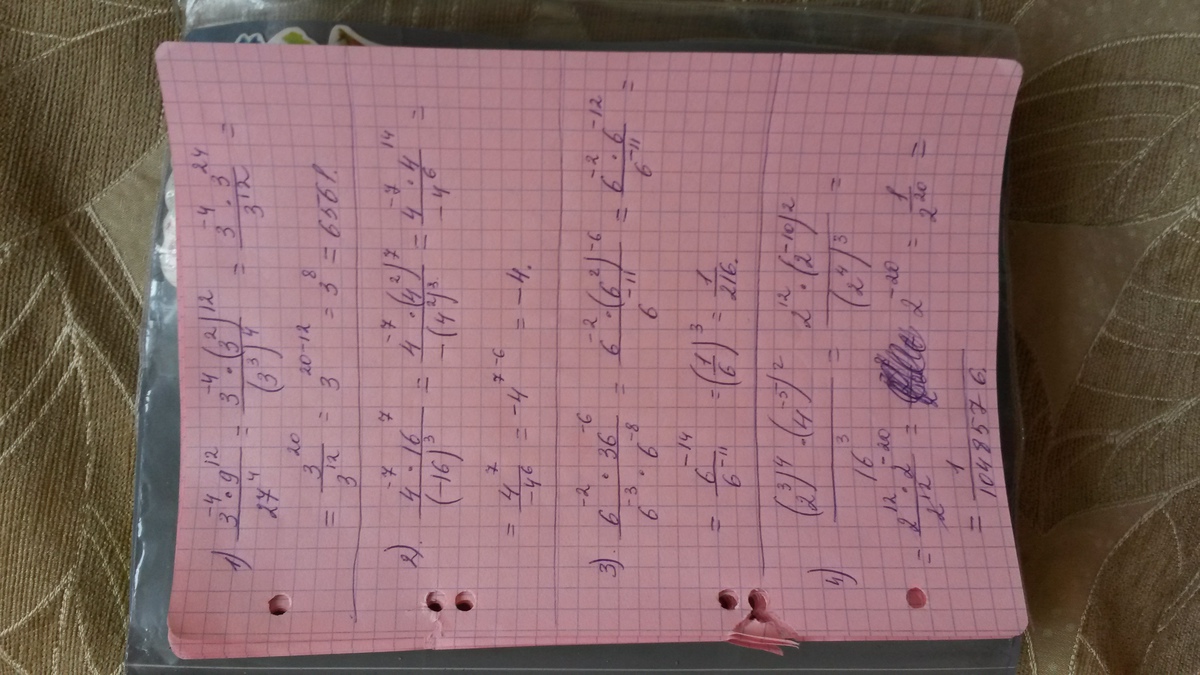 1) \frac{3^{-4} \cdot 9^{12}}{27^4} = \frac{3^{-4} \cdot (3^2)^{12}}{(3^3)^4} = \frac{3^{-4} \cdot 3^{24}}{3^{12}} =
= \frac{3^{20}}{3^{12}} = 3^{20-12} = 3^8 = 6561.
2) \frac{4^{-7} \cdot 16^7}{(-16)^3} = \frac{4^{-7} \cdot (4^2)^7}{-(4^2)^3} = \frac{4^{-7} \cdot 4^{14}}{-4^6} =
= \frac{4^7}{-4^6} = -4^{7-6} = -4.
3) \frac{6^{-2} \cdot 36^{-6}}{6^{-3} \cdot 6^{-8}} = \frac{6^{-2} \cdot (6^2)^{-6}}{6^{-11}} = \frac{6^{-2} \cdot 6^{-12}}{6^{-11}} =
= \frac{6^{-14}}{6^{-11}} = (\frac{1}{6})^3 = \frac{1}{216}.
4) \frac{(2^3)^4 \cdot (4^{-5})^2}{16^3} = \frac{2^{12} \cdot (2^{-10})^2}{(2^4)^3} =
= \frac{2^{12} \cdot 2^{-20}}{2^{12}} = 2^{-20} = \frac{1}{2^{20}} =
= \frac{1}{1048576}.